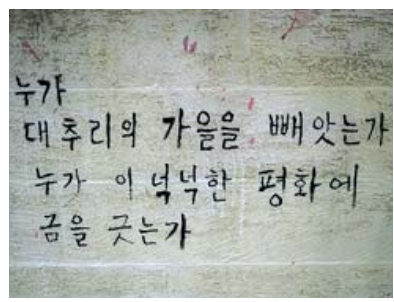 누가
대추리의 가을을 빼앗는가
누가 이 넉넉한 평화에
금을 긋는가